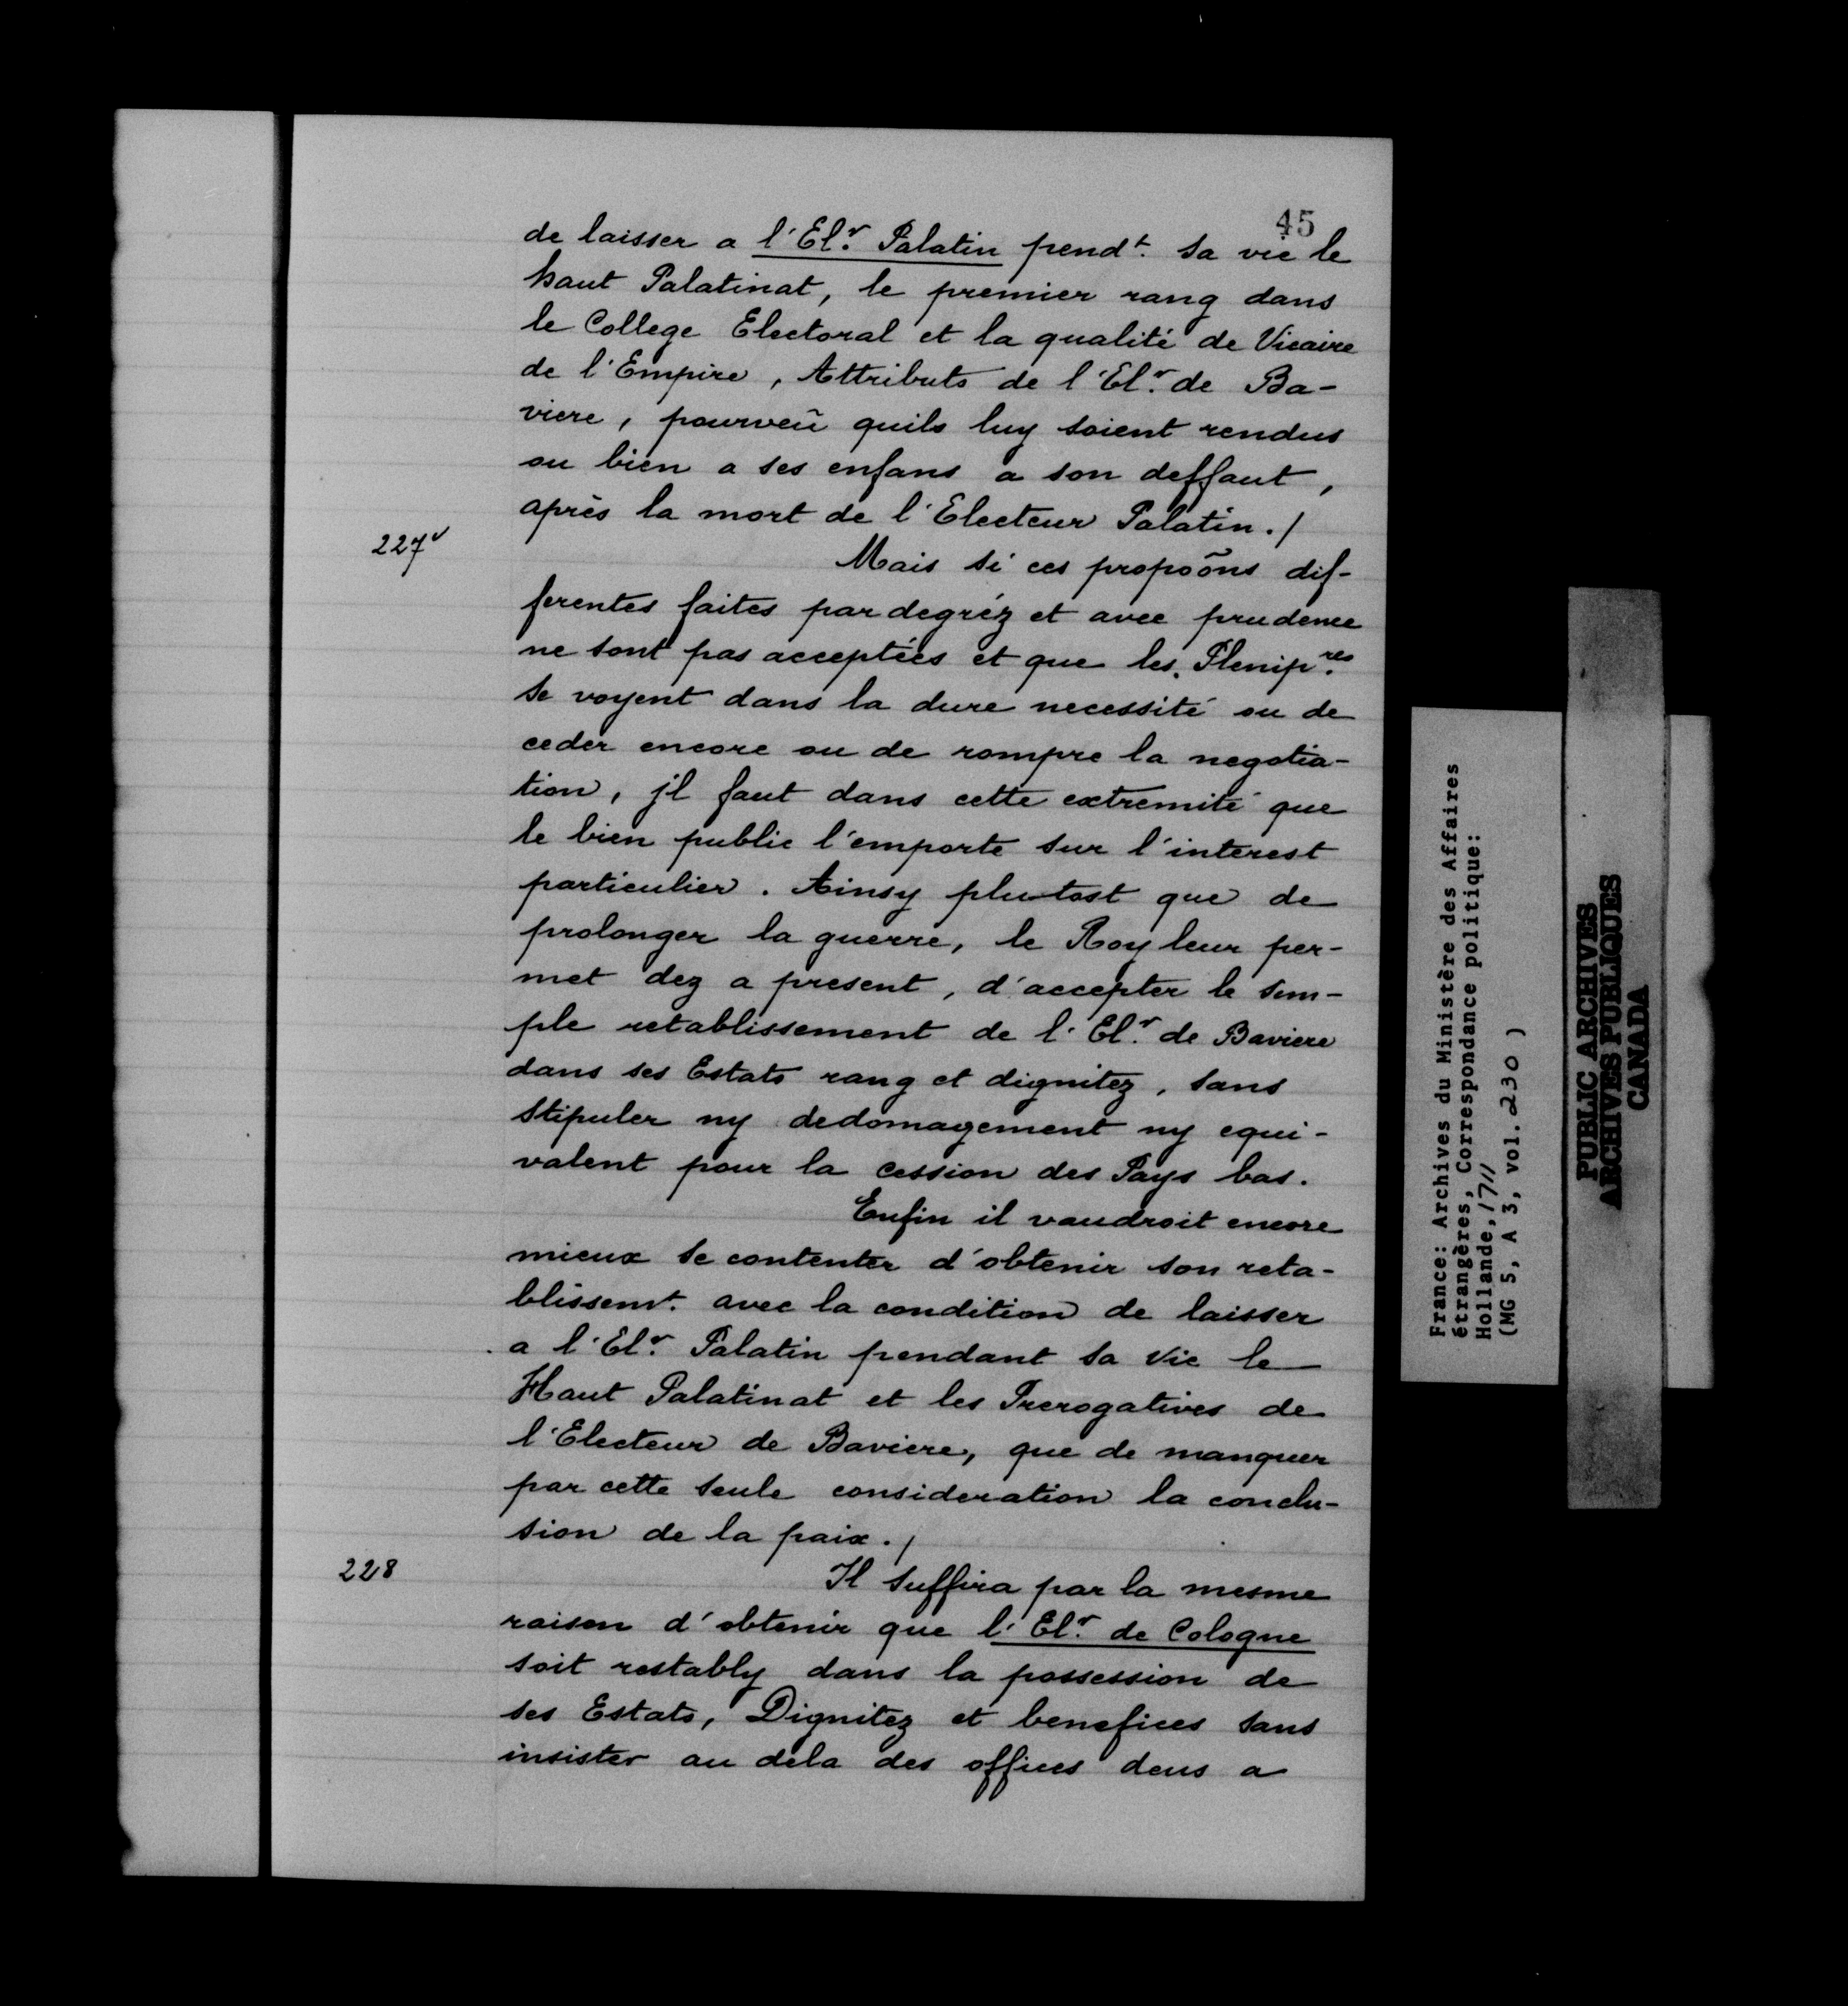 45
de laisser a l'El.r Palatin pend.t sa vie le
haut Palatinat, le premier rang dans
le College Electoral et la qualité de Vicaire
de l'Empire, Attributs de l'El.r de Ba-
viere, pourveû quils luy soient rendus
ou bien a ses enfans a son deffaut,
après la mort de l'Electeur Palatin./
227v
Mais si ces propoõns dif-
ferentes faites par degréz et avec prudence
ne sont pas acceptées et que les Plenip.res
se voyent dans la dure necessité ou de
ceder encore ou de rompre la negotia-
tion, jl faut dans cette extremité que
le bien public l'emporte sur l'interest
particulier. Ainsy plutost que de
prolonger la guerre, le Roy leur per-
met dez a present, d'accepter le sim-
ple retablissement de l'El.r de Baviere
dans ses Estats rang et dignitez, sans
stipuler ny dedomagement ny equi-
valent pour la cession des Pays bas.
Enfin il vaudroit encore
mieux se contenter d'obtenir son reta-
blissem.t avec la condition de laisser
a l'El.r Palatin pendant sa vie le
Haut Palatinat et les Prerogatives de
l'Electeur de Baviere, que de manquer
par cette seule consideration la conclu-
sion de la paix./
228
Il suffira par la mesme
raison d'obtenir que l'El.r de Cologne
soit restably dans la possession de
ses Estats, Dignitez et benefices sans
insister au dela des offices deus a
France: Archives du Ministère des Affaires
étrangères, Correspondance politique:
Hollande, 1711
(MG 5, A 3, vol. 230 )
PUBLIC ARCHIVES
ARCHIVES PUBLIQUES
CANADA